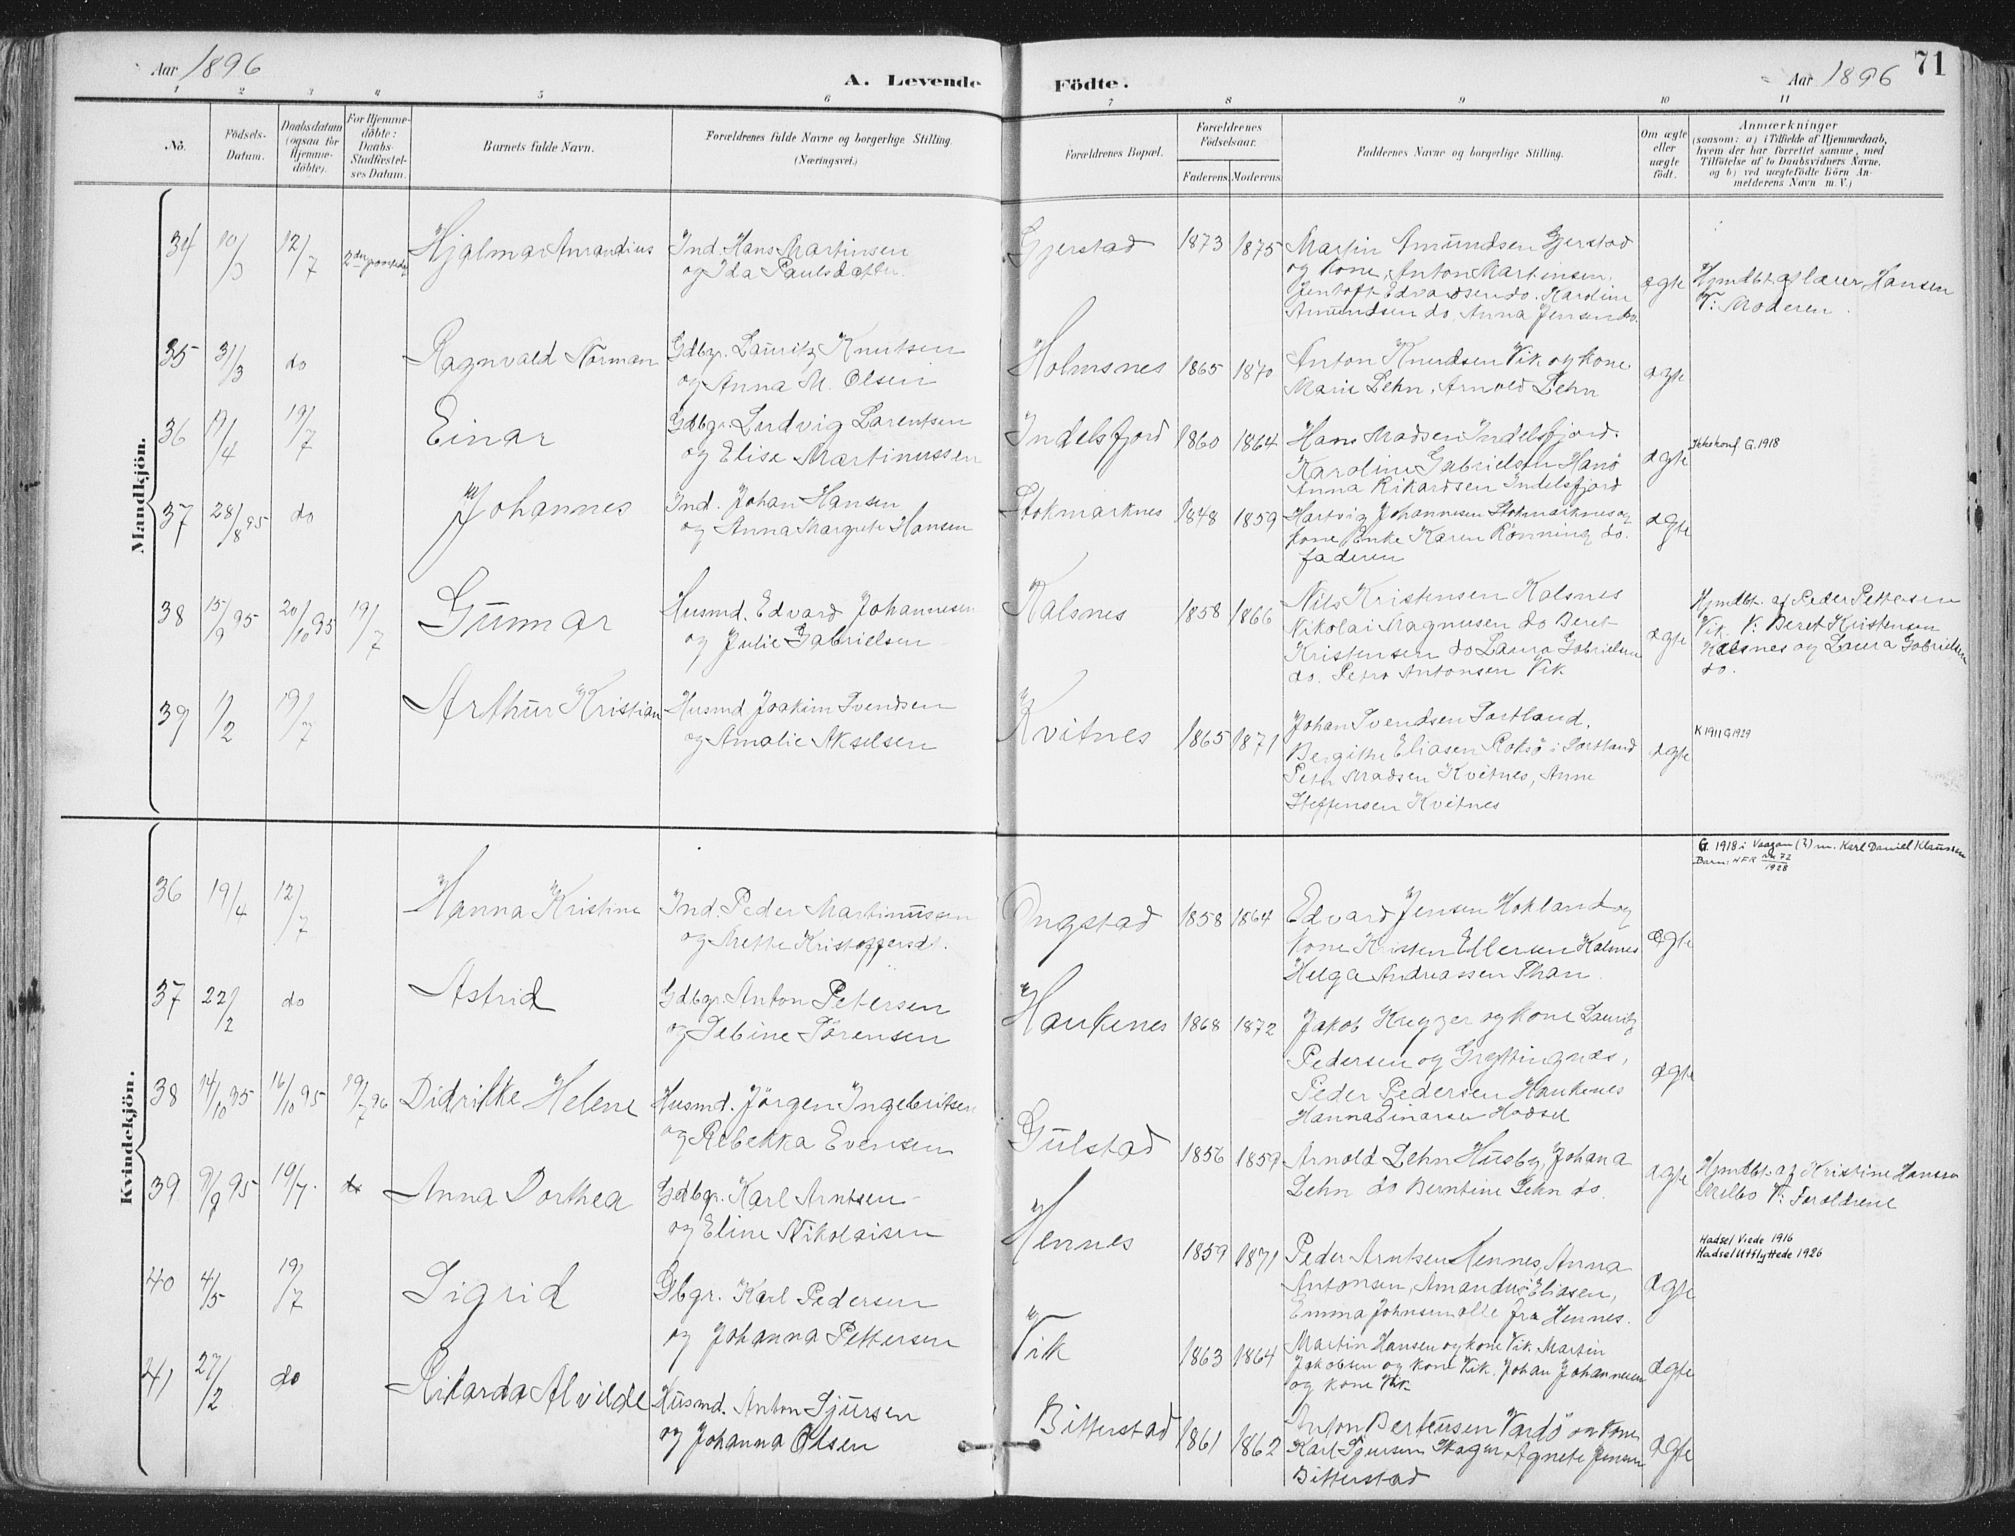 Aar 1896
A. Levende Födte.
Aar 1896
71
1 2 3 4 5 6 7 8 9 10 11
No.
Födsels-Datum.
Daabsdatum (ogsaa for Hjemme-döbte).
For Hjemme-döbte: Daabs-Stadfæstel-ses Datum.
Barnets fulde Navn.
Forældrenes fulde Navne og borgerlige Stilling. (Næringsvei.)
Forældrenes Bopæl.
Forældrenes Födselsaar.
Faderens. Moderens.
Faddernes Navne og borgerlige Stilling.
Om ægte eller uægte födt.
Anmærkninger
(saasom: a) i Tilfælde af Hjemmedaab,
hvem der har forrettet samme, med
Tilföielse af to Daabsvidners Navne,
og b) ved uægtefödte Börn An-
melderens Navn m. V.)
Mandkjön.
34 10/3 12/7 Hjalmar Amandius
Ind. Hans Martinsen
og Ida Paulsdatter
Gjerstad 1873 1875
Martin Amundsen Gjerstad
og kone, Anton Martinsen.
Jentoft Edvardsen do. Kardine
Amundsen do. Anna Jensen do.
ægte
Hjmdbt. af lærer Hansen
V: Moderen.
35 31/3 do Ragnvald Norman
Gdbgr. Lauritz Knutsen
og Anna M. Olsen
Holmsnes 1865 1870
Anton Knudsen Vik og kone
Marie Lehn, Arnold Lehn
ægte
36 19/4 19/7 Einar
Gdbgr. Ludvig Larentsen
og Elise Martinussen
Indelsfjord 1860 1864
Hans Madsen Indelsfjord.
Karoline Gabrielsen Hanö
Anna Rikardsen Indelsfjord
ægte
Ikkekonf G. 1918
37 28/8 95 do Johannes
Ind. Johan Hansen
og Anna Margrete Hansen
Stokmarknes 1848 1859
Hartvig Johannesen Stokmarknes og
kone, Enke Karen Rönning do.
faderen
ægte
38 15/9 95 20/10 95 19/7 Gunnar
Husmd. Edvard Johannesen
og Julie Gabrielsen
Kalsnes 1858 1866
Nils Kristensen Kalsnes
Nikolai Magnusen do Beret
Kristensen do Laura Gabrielsen
do. Petra Antonsen Vik
ægte
Hjmdbt. af Peder Pettersen
Vik. V: Beret Kristensen
Kalsnes og Laura Gabrielsen
do.
39 1/2 19/7 Arthur Kristian
Husmd Joakim Svendsen
og Amalie Akselsen
Kvitnes 1865 1871
Johan Svendsen Sortland.
Bergithe Eliasen Roksö i Sortland
Peter Madsen Kvitnes, Anne
Steffensen Kvitnes
ægte
K 1911 G 1929
Kvindekjön.
G. 1918 i Vaagan (?) m. Karl Daniel Klaussen
Barn: NFR nr 72/1928
36 19/4 12/7 Hanna Kristine
Ind. Peder Martinussen
og Mette Kristoffersdt.
Ongstad 1858 1864
Edvard Jensen Hokland og
kone Kristen Ellersen Kalsnes
Helga Andreassen Than.
ægte
37 22/2 do Astrid
Gdbgr. Anton Petersen
og Sebine Sörensen
Haukenes 1868 1872
Jakob Krygger og kone Lauritz
Pedersen og Grytingnæs,
Peder Pedersen Haukenes
Hanna Einarsen Hadsel
ægte
38 14/10 95 16/10 95 19/7 96 Didrikke Helene
Husmd. Jörgen Ingebritsen
og Rebekka Evensen
Gulstad 1856 1859
Arnold Lehn Husby, Johana
Lehn do Berntine Lehn do.
ægte
Hjmdbt. af Kristine Hansen
Melbo V: Foræeldrene
39 9/9 95 19/7. Anna Dorthea
Gdbgr. Karl Arntsen
og Eline Nikolaisen
Hennes 1859 1871
Peder Arntsen Hennes, Anna
Antonsen, Amandus Eliasen,
Emma Johnsen alle fra Hennes.
ægte
Hadsel Viede 1916
Hadsel Utflyttede 1926
40 4/5 19/7 Sigrid
Gbgr. Karl Pedersen
og Johanna Pettersen
Vik 1863 1864
Martin Hansen og kone Vik. Martin
Jakobsen og kone Vik. Johan Johannesen
og kone Vik
ægte
41 27/2 do Rikarda Alvilde
Husmd. Anton Sjursen
og Johanna Olsen
Bitterstad 1861 1862
Anton Berteusen Vardö og kone
Karl Sjursen Skagen, Agnete Jensen
Bitterstad
ægte